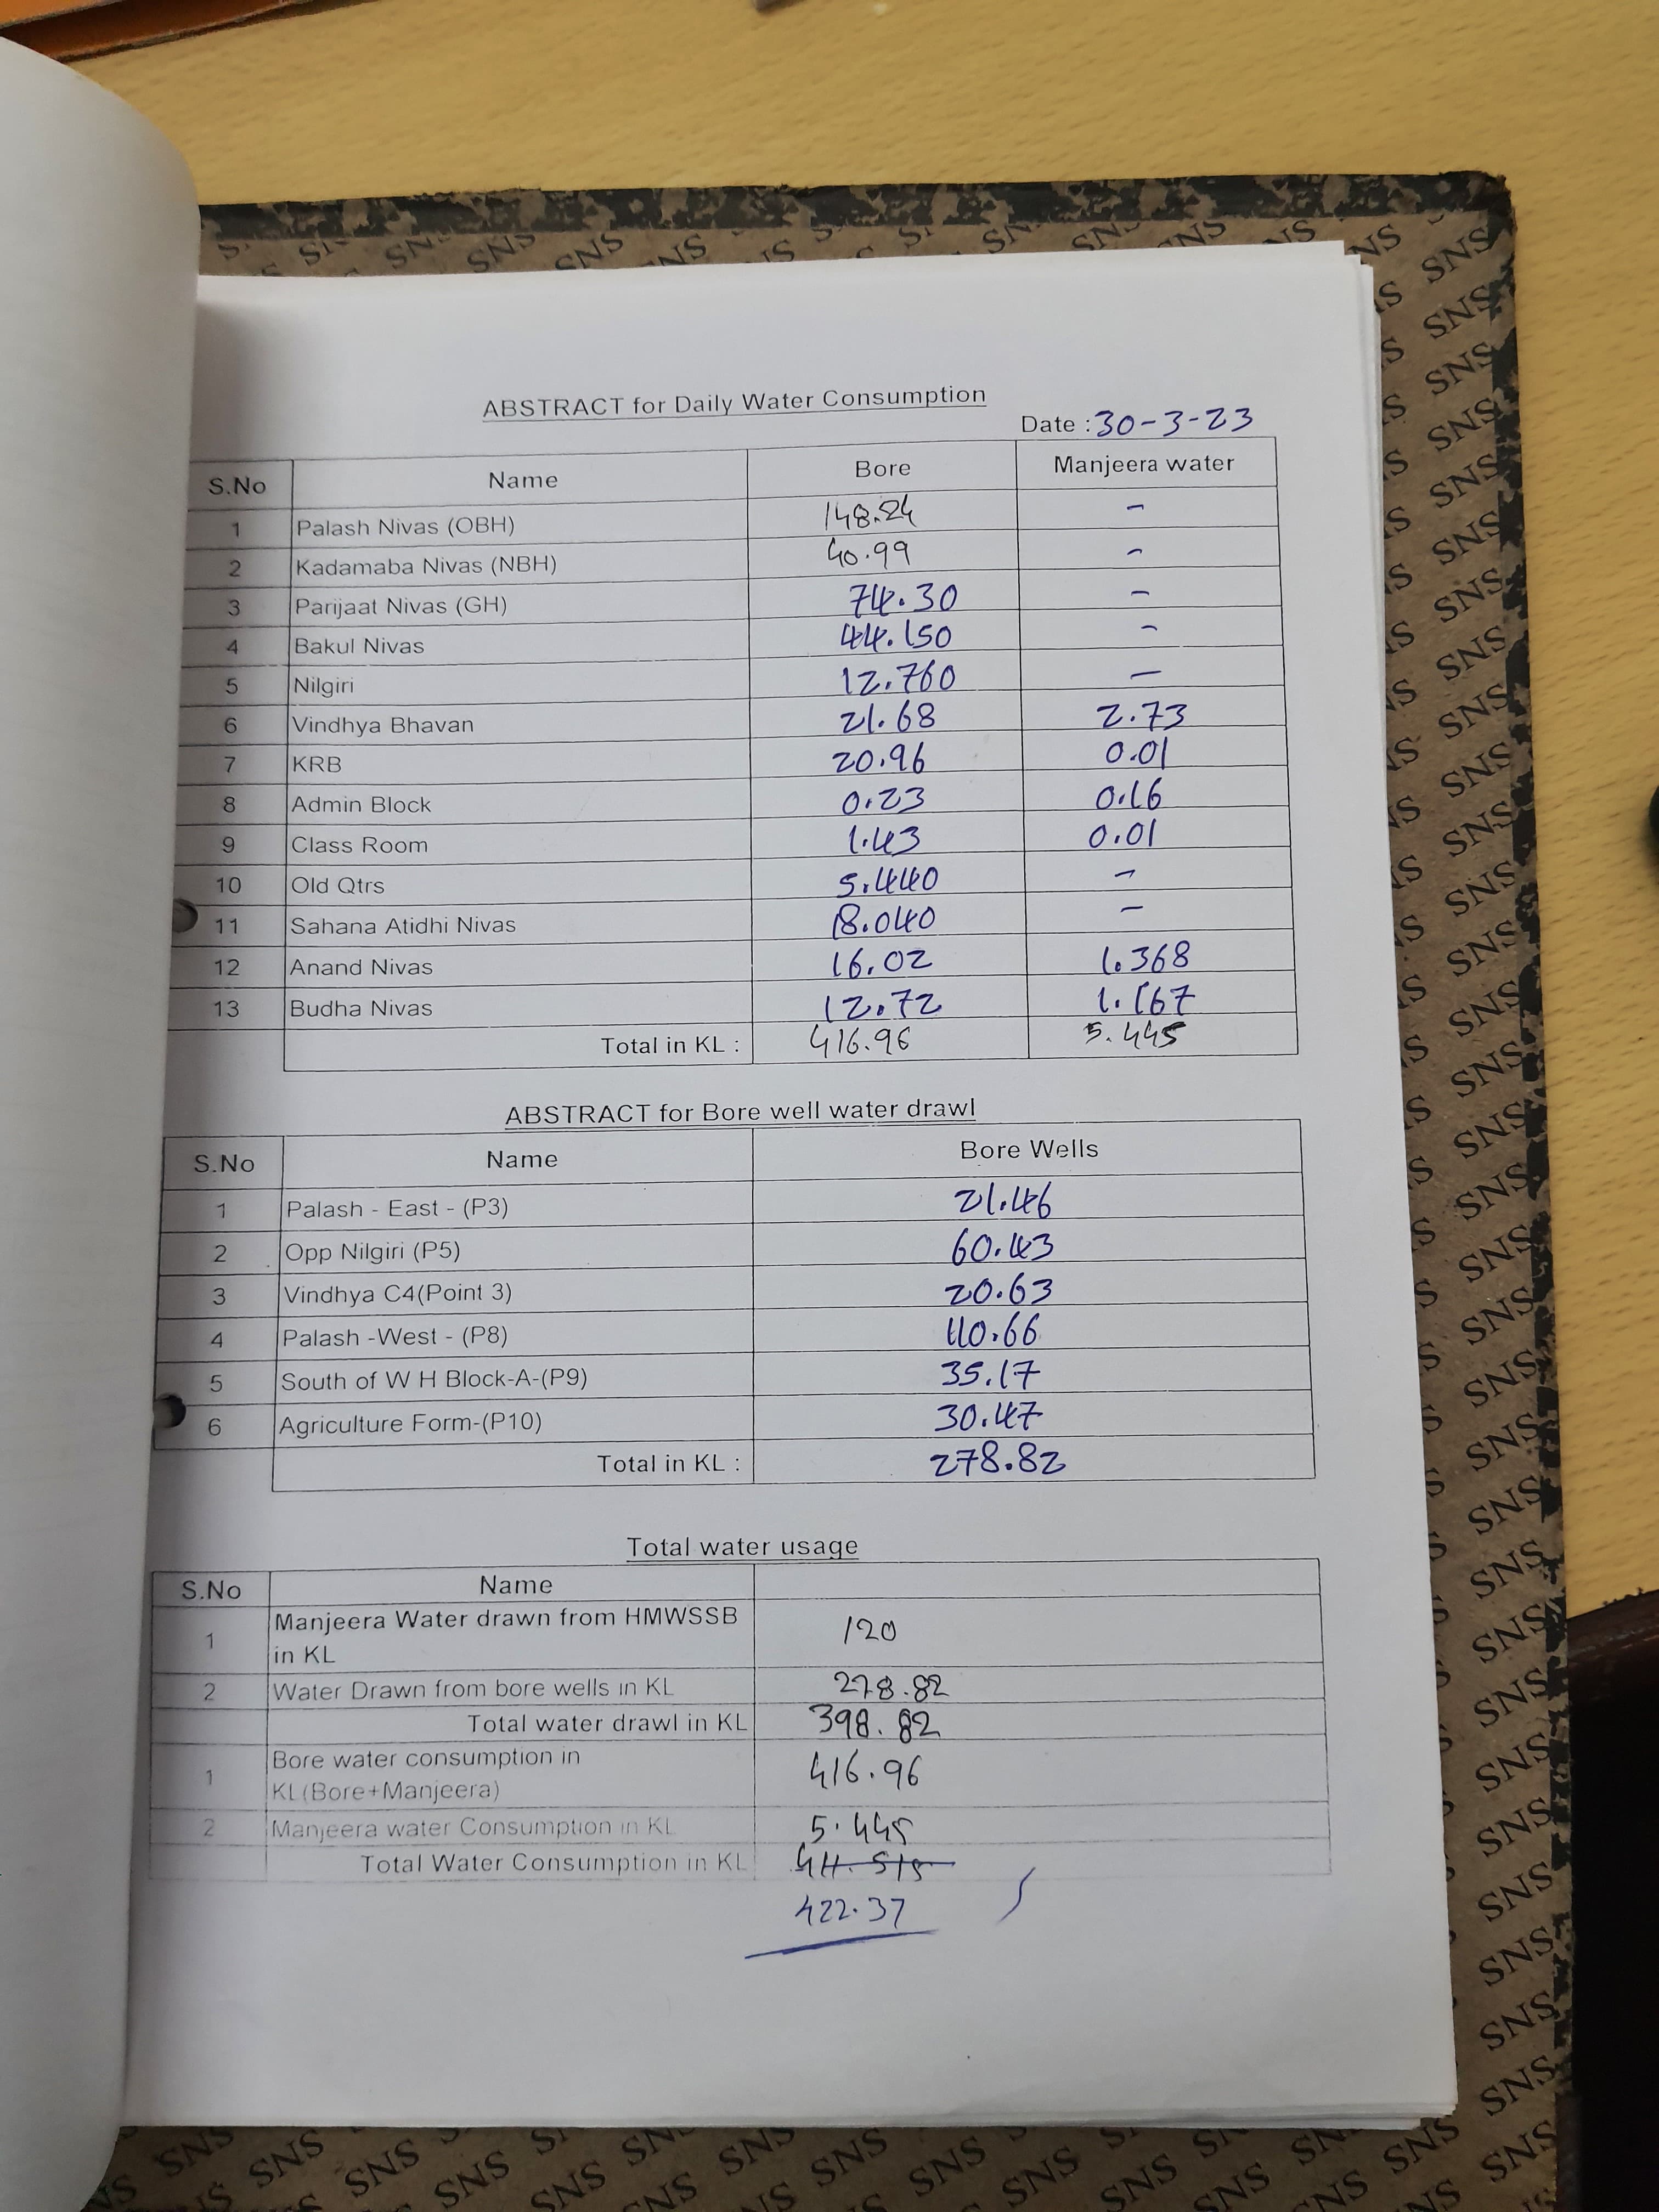 ABSTRACT for Daily Water Consumption
Date : 30-3-23
S.No Name Bore Manjeera water
1 Palash Nivas (OBH) 148.24 -
2 Kadamaba Nivas (NBH) 40.99 -
3 Parijaat Nivas (GH) 74.30 -
4 Bakul Nivas 44.150 -
5 Nilgiri 12.760 -
6 Vindhya Bhavan 21.68 2.73
7 KRB 20.96 0.01
8 Admin Block 0.23 0.16
9 Class Room 1.43 0.01
10 Old Qtrs 5.440 -
11 Sahana Atidhi Nivas 18.040 -
12 Anand Nivas 16.02 1.368
13 Budha Nivas 12.72 1.167
Total in KL : 416.96 5.445
ABSTRACT for Bore well water drawl
S.No Name Bore Wells
1 Palash - East - (P3) 21.46
2 Opp Nilgiri (P5) 60.43
3 Vindhya C4(Point 3) 20.63
4 Palash -West - (P8) 110.66
5 South of W H Block-A-(P9) 35.17
6 Agriculture Form-(P10) 30.47
Total in KL : 278.82
Total water usage
S.No Name
1 Manjeera Water drawn from HMWSSB
in KL 120
2 Water Drawn from bore wells in KL 278.82
Total water drawl in KL 398.82
1 Bore water consumption in
KL(Bore+Manjeera) 416.96
2 Manjeera water Consumption in KL 5.445
Total Water Consumption in KL
422.37